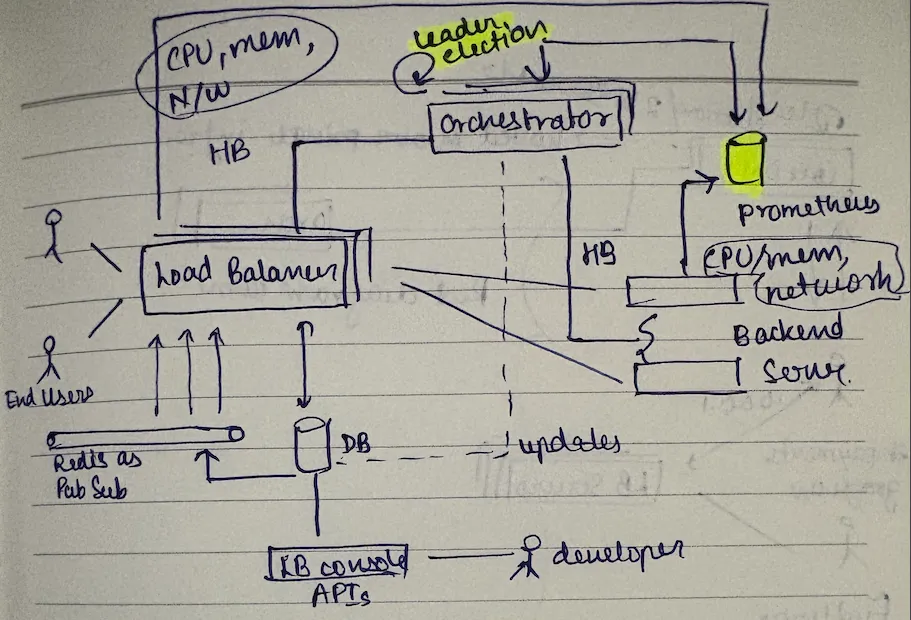 leader
election
CPU, mem,
N/W
Orchestrator
HB
Prometheus
HB
CPU/mem,
network
Load Balancer
Backend
Server
End Users
DB
updates
Redis as
Pub Sub
LB console
APIs
developer